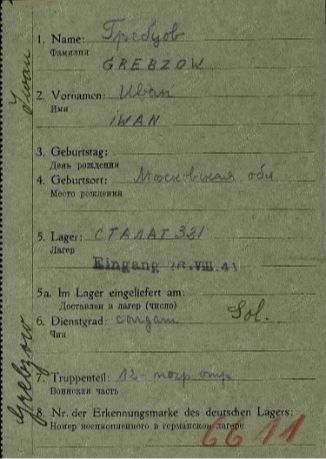 1. Name: Гребцов
Фамилия
GREBZOW
2. Vornamen: Иван
Имя
IWAN
3. Geburtstag:
День рождения
4. Geburtsort: Московская обл
Место рождения
5. Lager: СТАЛАГ 321
Лагер
Eingang VIII. 41
5a. Im Lager eingeliefert am:
Доставлен в лагер (число)
Sol.
6. Dienstgrad: солдат
Чин
7. Truppenteil: 12 погр отр
Воинская часть
8. Nr. der Erkennungsmarke des deutschen Lagers:
Номер военнопленного в германском лагере
6611
Iwan
Grebzow